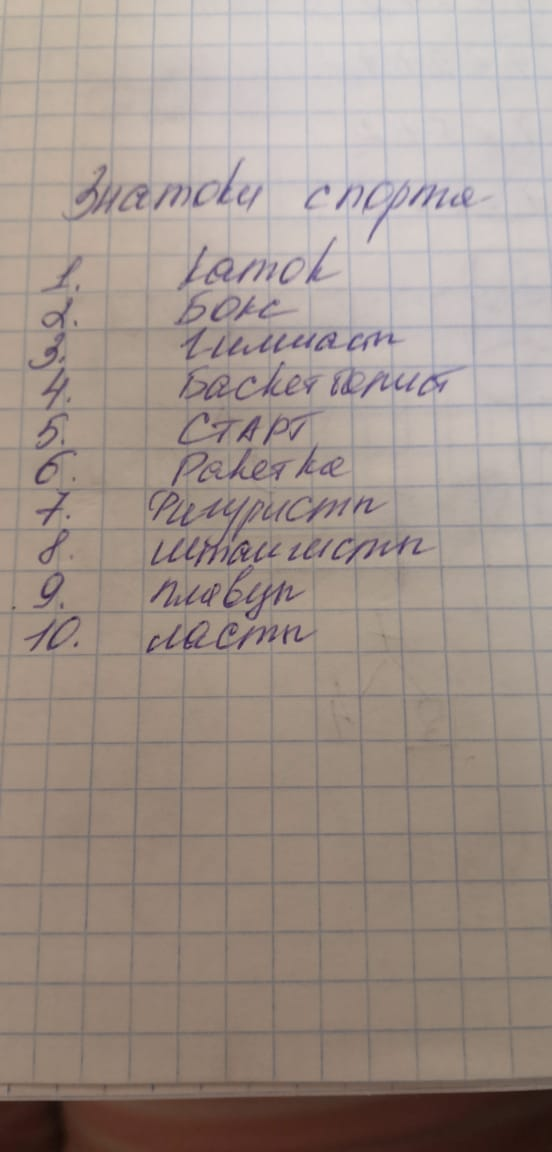 Знатоки спорта
1. каток
2. Бокс
3. Гимнаст
4. Баскетболист
5. СТАРТ
6. Ракетка
7. Фигуристы
8. штангисты
9. пловцы
10. ласты